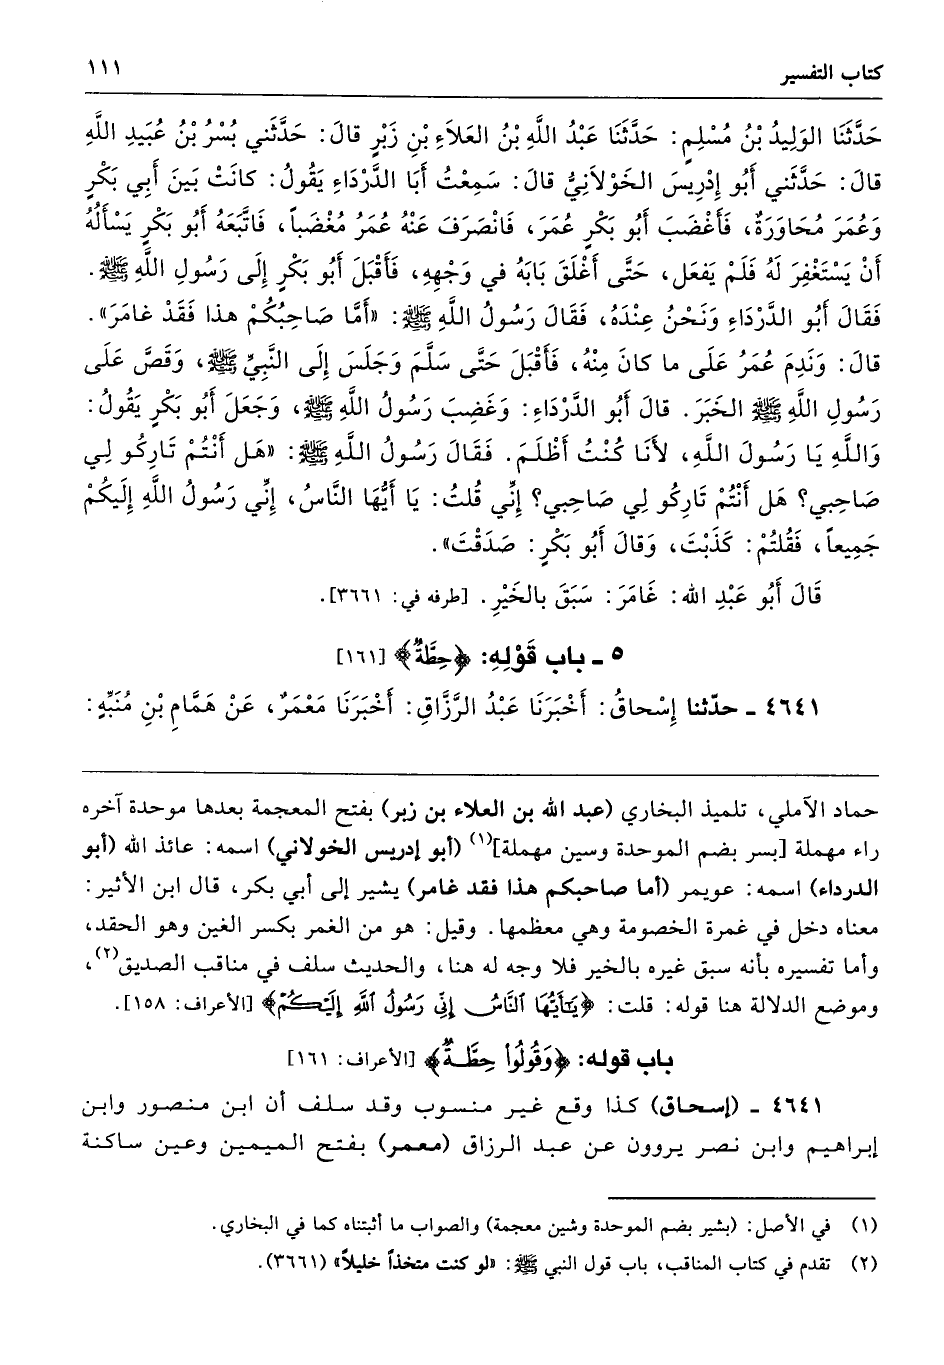 كتاب التفسير ١١١
حَدَّثَنَا الوَلِيدُ بْنُ مُسْلِمٍ: حَدَّثَنَا عَبْدُ اللَّهِ بْنُ العَلاَءِ بْنِ زَبْرٍ قالَ: حَدَّثَني بُسْرُ بْنُ عُبَيدِ اللَّهِ
قالَ: حَدَّثَني أَبُو إِدْرِيسَ الخَوْلاَنِيُّ قالَ: سَمِعْتُ أَبَا الدَّرْدَاءِ يَقُولُ: كانَتْ بَينَ أَبِي بَكْرٍ
وَعُمَرَ مُحَاوَرَةٌ، فَأَغْضَبَ أَبُو بَكْرٍ عُمَرَ، فَانْصَرَفَ عَنْهُ عُمَرُ مُغْضَباً، فَاتَّبَعَهُ أَبُو بَكْرٍ يَسْأَلُهُ
أَنْ يَسْتَغْفِرَ لَهُ فَلَمْ يَفعَل، حَتَّى أَغْلَقَ بَابَهُ في وَجْهِهِ، فَأَقْبَلَ أَبو بَكْرٍ إِلَى رَسُولِ اللَّهِ ﷺ.
فَقَالَ أَبُو الدَّرْدَاءِ وَنَحْنُ عِنْدَهُ، فَقَالَ رَسُولُ اللَّهِ ﷺ: «أَمَّا صَاحِبُكُمْ هذا فَقَدْ غامَرَ».
قالَ: وَنَدِمَ عُمَرُ عَلَى ما كانَ مِنْهُ، فَأَقْبَلَ حَتَّى سَلَّمَ وَجَلَسَ إِلَى النَّبِيِّ ﷺ، وَقَصَّ عَلَى
رَسُولِ اللَّهِ ﷺ الخَبَرَ. قالَ أَبُو الدَّرْدَاءِ: وَغَضِبَ رَسُولُ اللَّهِ ﷺ، وَجَعَلَ أَبُو بَكْرٍ يَقُولُ:
وَاللَّهِ يَا رَسُولَ اللَّهِ، لأَنَا كُنْتُ أَظْلَمَ. فَقَالَ رَسُولُ اللَّهِ ﷺ: «هَل أَنْتُمْ تَارِكُو لِي
صَاحِبي؟ هَل أَنْتُمْ تَارِكُو لِي صَاحِبي؟ إِنِّي قُلتُ: يَا أَيُّهَا النَّاسُ، إِنِّي رَسُولُ اللَّهِ إِلَيكُمْ
جَمِيعاً، فَقُلتُمْ: كَذَبْتَ، وَقالَ أَبُو بَكْرٍ: صَدَقْتَ».
قَالَ أَبُو عَبْدِ الله: غَامَرَ: سَبَقَ بالخَيْرِ. [طرفه في: ٣٦٦١].
٥ ـ باب قَوْلِهِ: ﴿حِطَّةٌ﴾ [١٦١]
٤٦٤١ ـ حدّثنا إِسْحاقُ: أَخْبَرَنَا عَبْدُ الرَّزَّاقِ: أَخْبَرَنَا مَعْمَرٌ، عَنْ هَمَّامِ بْنِ مُنَبِّهٍ:
حماد الآملي، تلميذ البخاري (عبد الله بن العلاء بن زبر) بفتح المعجمة بعدها موحدة آخره
راء مهملة [بسر بضم الموحدة وسين مهملة](١) (أبو إدريس الخولاني) اسمه: عائذ الله (أبو
الدرداء) اسمه: عويمر (أما صاحبكم هذا فقد غامر) يشير إلى أبي بكر، قال ابن الأثير:
معناه دخل في غمرة الخصومة وهي معظمها. وقيل: هو من الغمر بكسر الغين وهو الحقد،
وأما تفسيره بأنه سبق غيره بالخير فلا وجه له هنا، والحديث سلف في مناقب الصديق(٢)،
وموضع الدلالة هنا قوله: قلت: ﴿يَٰٓأَيُّهَا ٱلنَّاسُ إِنِّي رَسُولُ ٱللَّهِ إِلَيْكُمْ﴾ [الأعراف: ١٥٨].
باب قوله: ﴿وَقُولُواْ حِطَّةٌ﴾ [الأعراف: ١٦١]
٤٦٤١ ـ (إسحاق) كذا وقع غير منسوب وقد سلف أن ابن منصور وابن
إبراهيم وابن نصر يروون عن عبد الرزاق (معمر) بفتح الميمين وعين ساكنة
(١) في الأصل: (بشير بضم الموحدة وشين معجمة) والصواب ما أثبتناه كما في البخاري.
(٢) تقدم في كتاب المناقب، باب قول النبي ﷺ: «لو كنت متخذاً خليلاً» (٣٦٦١).